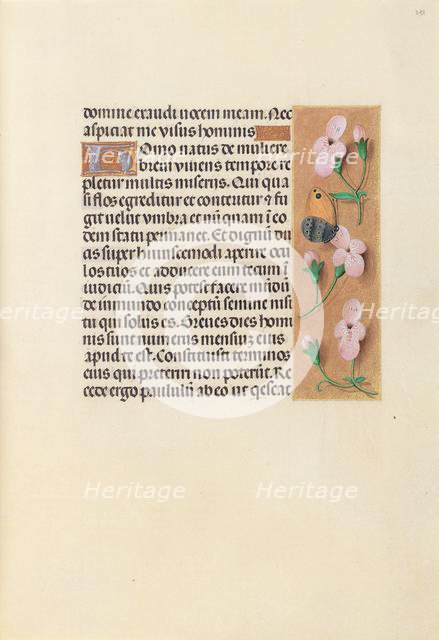 domine exaudi vocem meam. Nec
aspiciat me visus hominis
Homo natus de muliere
brevi vivens tempore re
pletur multis miseriis. Qui qua
si flos egreditur et conteritur & fu
git velut vmbra et nūquam ī eo
dem statu permanet. Et dignū du
as super huiuscemodi aperire ocu
los tuos et adducere eum tecum ī
iudiciū. Quis potest facere mūdū
de inmundo conceptū semine nisi
tu qui solus es. Breues dies homi
nis sunt numerus mensiuʒ eius
apud te est. Constituisti terminos
eius qui preteriri non poterūt. Re
cede ergo paululū ab eo ut qescat
Heritage Heritage
Heritage Heritage Heritage
Heritage Heritage